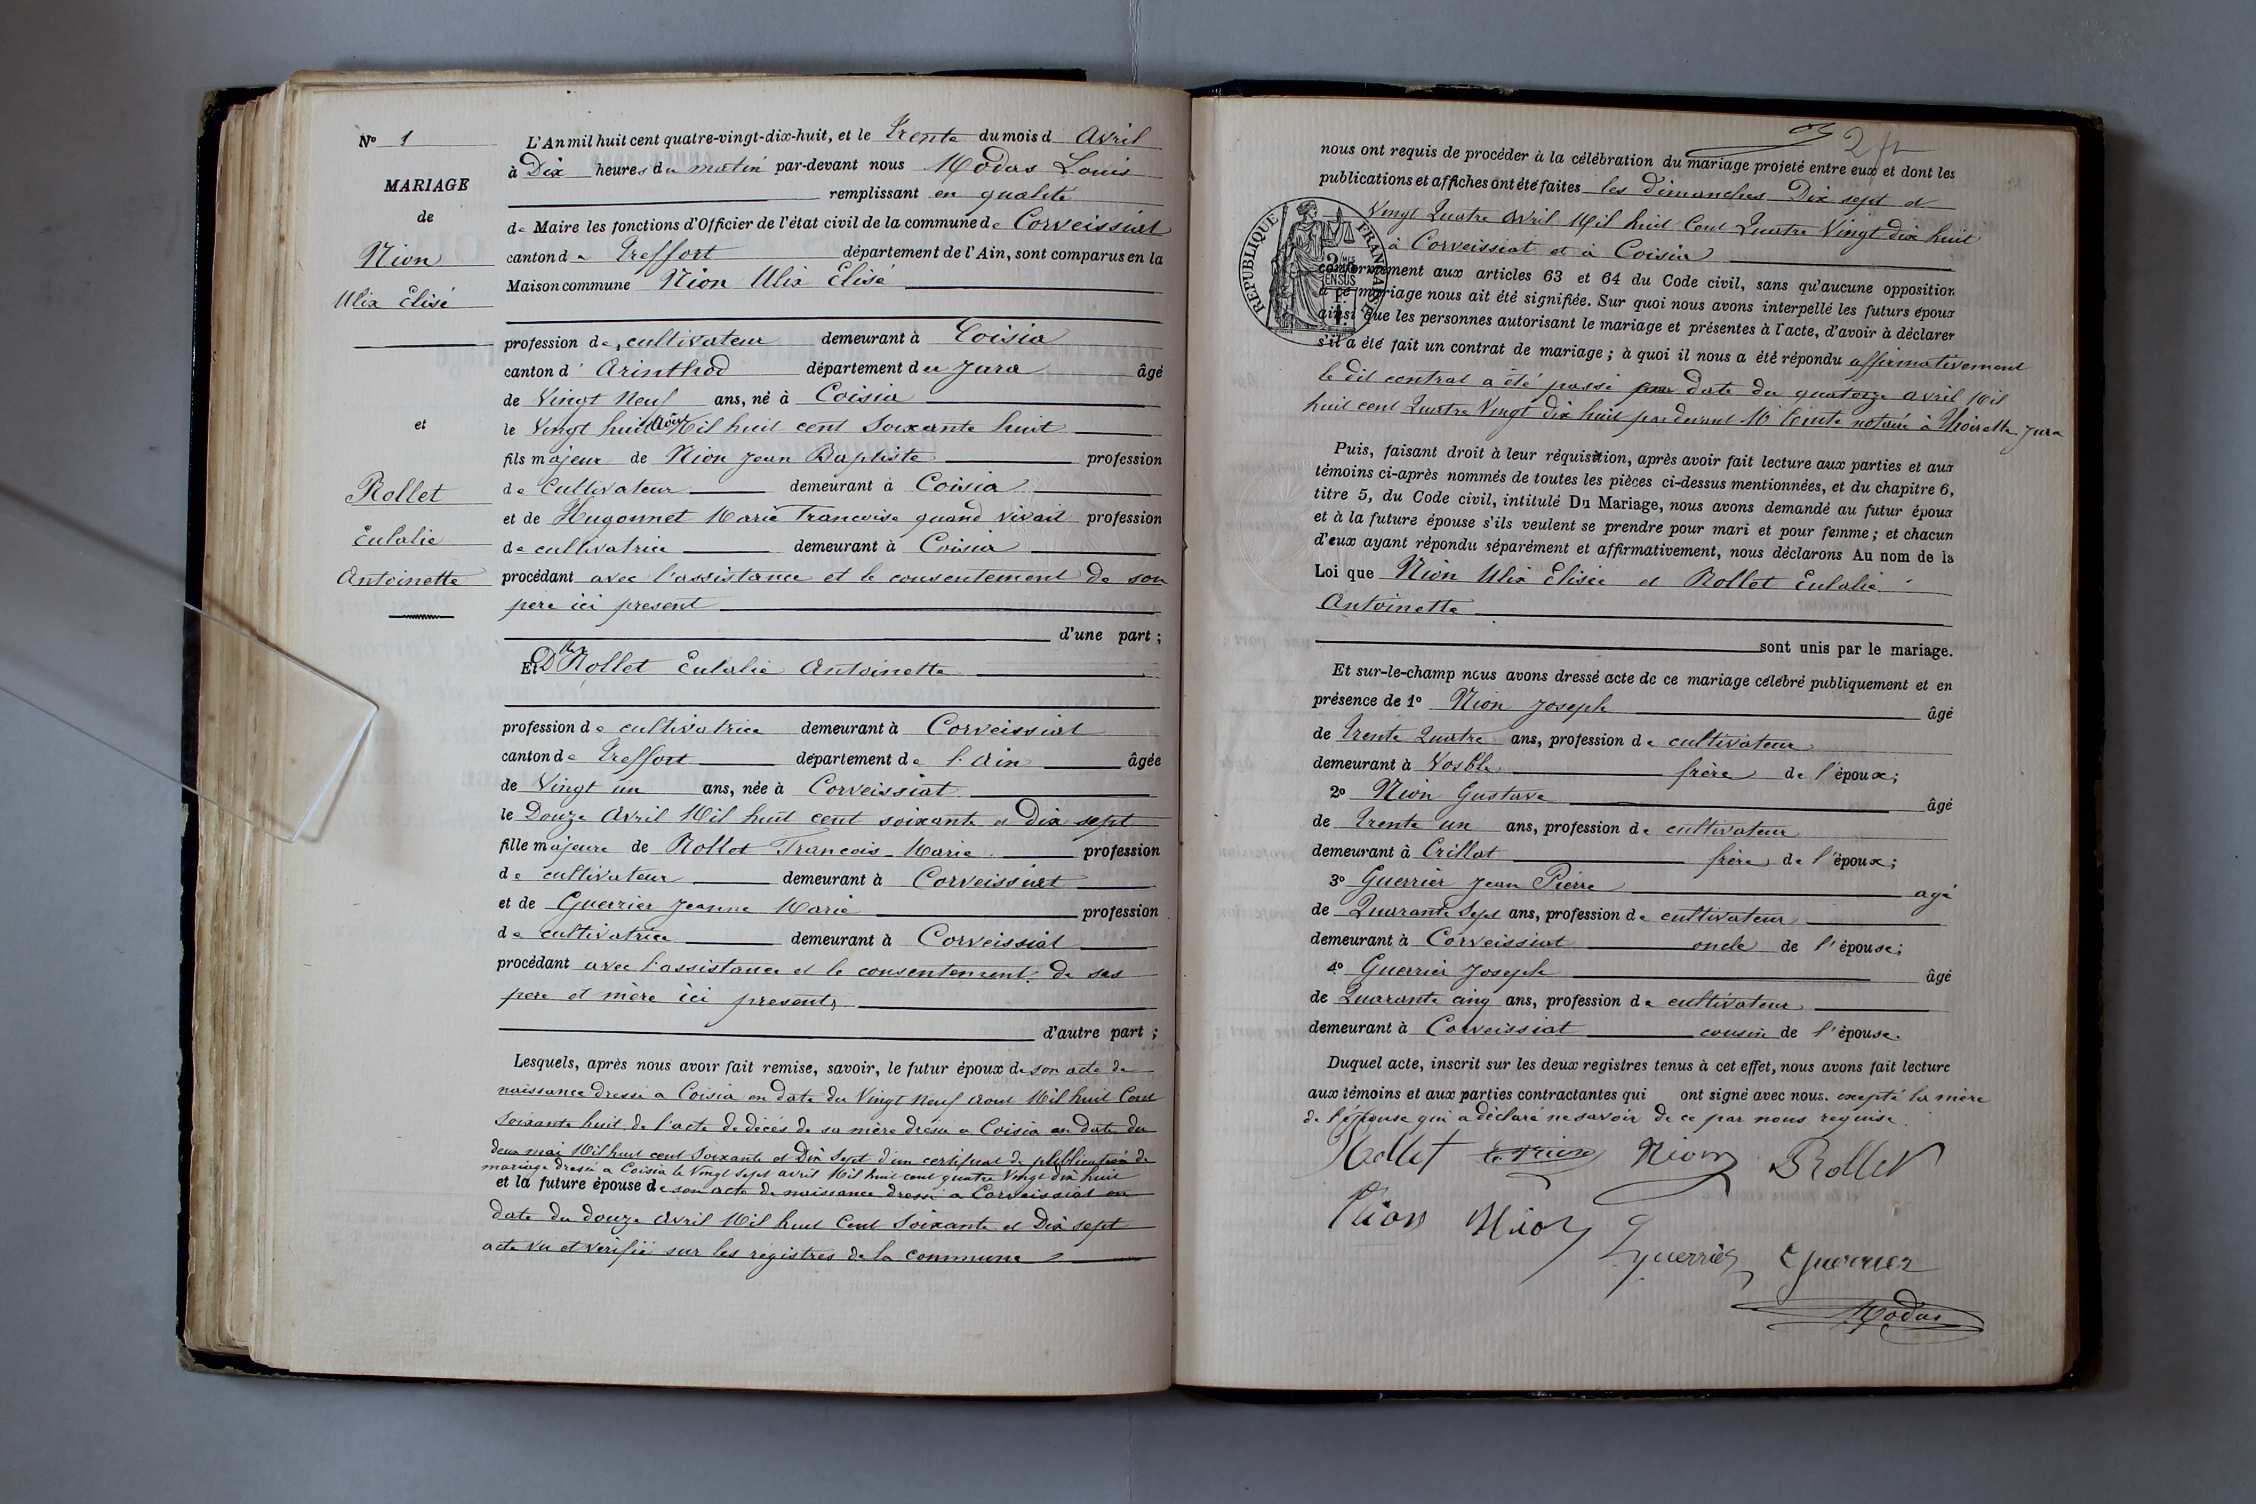 N° 1
MARIAGE
de
Nion
Ulix Elisé
et
Rollet
Eulalie
Antoinette
L'An mil huit cent quatre-vingt-dix-huit, et le Trente du mois d Avril
à Dix heures du matin par-devant nous Modas Louis
remplissant en qualité
de Maire les fonctions d'Officier de l'état civil de la commune de Corveissiat
canton de Treffort département de l'Ain, sont comparus en la
Maison commune Nion Ulix Elisé
profession de cultivateur demeurant à Coisia
canton d' Arinthod département du Jura âgé
de Vingt Neuf ans, né à Coisia
le Vingt huit Août Mil huit cent Soixante huit
fils majeur de Nion Jean Baptiste profession
de Cultivateur demeurant à Coisia
et de Hugonnet Marie Francoise quand vivait profession
de cultivatrice demeurant à Coisia
procédant avec l'assistance et le consentement de son
pere ici present
d'une part ;
Et Dlle Rollet Eulalie Antoinette
profession de cultivatrice demeurant à Corveissiat
canton de Treffort département de l'Ain âgée
de Vingt un ans, née à Corveissiat
le Douze Avril Mil huit cent soixante et Dix sept
fille majeure de Rollet Francois Marie profession
de cultivateur demeurant à Corveissiat
et de Guerrier Jeanne Marie profession
de cultivatrice demeurant à Corveissiat
procédant avec l'assistance et le consentement de ses
pere et mère ici presents
d'autre part ;
Lesquels, après nous avoir fait remise, savoir, le futur époux de son acte de
naissance dressé a Coisia en date du Vingt Neuf Aout Mil huit Cent
Soixante huit de l'acte de décés de sa mère dressé a Coisia en date du
deux mai Mil huit cent Soixante et Dix Sept d'un certificat de publication de
mariage dressé a Coisia le Vingt Sept avril Mil huit cent quatre Vingt dix huit
et la future épouse de son acte de naissance dressé a Corveissiat en
date du douze Avril Mil huit Cent Soixante et Dix sept
acte vu et verifié sur les registres de la commune
2
nous ont requis de procéder à la célébration du mariage projeté entre eux et dont les
publications et affiches ont été faites les dimanches Dix sept et
Vingt Quatre Avril Mil huit Cent Quatre Vingt dix huit
à Corveissiat et à Coisia
REPUBLIQUE FRANÇAISE
conformément aux articles 63 et 64 du Code civil, sans qu'aucune opposition
à ce mariage nous ait été signifiée. Sur quoi nous avons interpellé les futurs époux
ainsi que les personnes autorisant le mariage et présentes à l'acte, d'avoir à déclarer
s'il a été fait un contrat de mariage ; à quoi il nous a été répondu affirmativement
le dit contrat a été passé date du quatorze avril Mil
huit cent Quatre Vingt dix huit par devant Me notaire à Thoirette Jura
Puis, faisant droit à leur réquisition, après avoir fait lecture aux parties et aux
témoins ci-après nommés de toutes les pièces ci-dessus mentionnées, et du chapitre 6,
titre 5, du Code civil, intitulé Du Mariage, nous avons demandé au futur époux
et à la future épouse s'ils veulent se prendre pour mari et pour femme ; et chacun
d'eux ayant répondu séparément et affirmativement, nous déclarons Au nom de la
Loi que Nion Ulix Elisée et Rollet Eulalie
Antoinette
sont unis par le mariage.
Et sur-le-champ nous avons dressé acte de ce mariage célébré publiquement et en
présence de 1° Nion Joseph âgé
de Trente Quatre ans, profession de cultivateur
demeurant à Vosbles frère de l'époux ;
2° Nion Gustave âgé
de Trente un ans, profession de cultivateur
demeurant à Crillat frère de l'époux ;
3° Guerrier Jean Pierre agé
de Quarante Sept ans, profession de cultivateur
demeurant à Corveissiat oncle de l'épouse ;
4° Guerrier Joseph âgé
de Quarante cinq ans, profession de cultivateur
demeurant à Corveissiat cousin de l'épouse.
Duquel acte, inscrit sur les deux registres tenus à cet effet, nous avons fait lecture
aux témoins et aux parties contractantes qui ont signé avec nous. excepté la mère
de l'épouse qui a déclaré ne savoir de ce par nous requise.
Rollet Nion Rollet
Nion Nion
Guerrier Guerrier
Modas